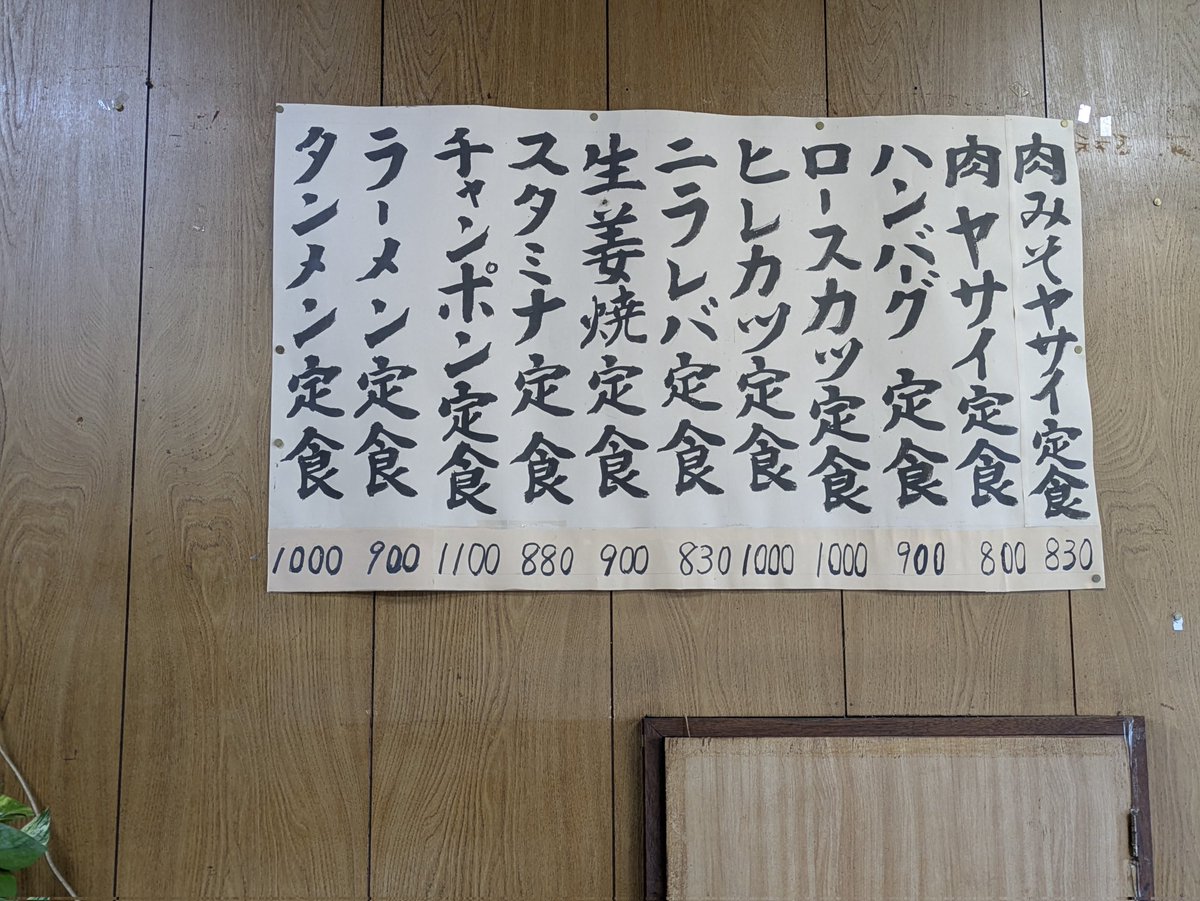 肉みそヤサイ定食
830
肉ヤサイ定食
800
ハンバーグ定食
900
ロースカツ定食
1000
ヒレカツ定食
1000
ニラレバ定食
830
生姜焼定食
900
スタミナ定食
880
チャンポン定食
1100
ラーメン定食
900
タンメン定食
1000